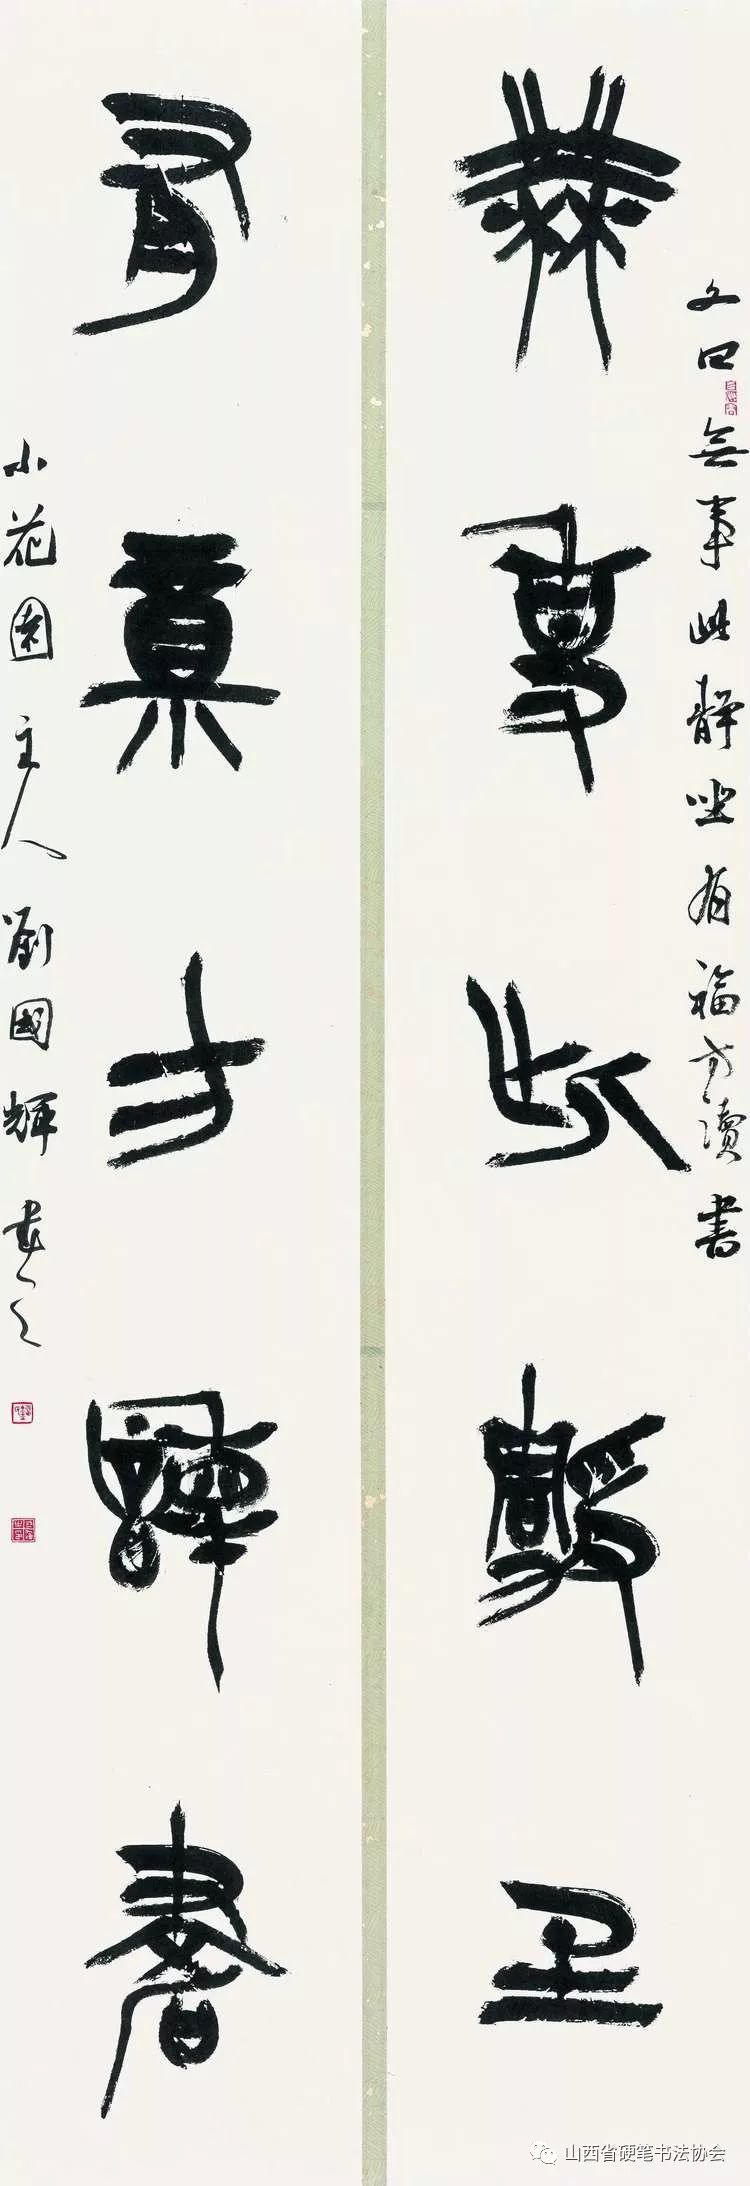 文曰無事此靜坐有福方讀書
無事此靜坐
有福方讀書
小花園主人劉國輝書之
山西省硬笔书法协会